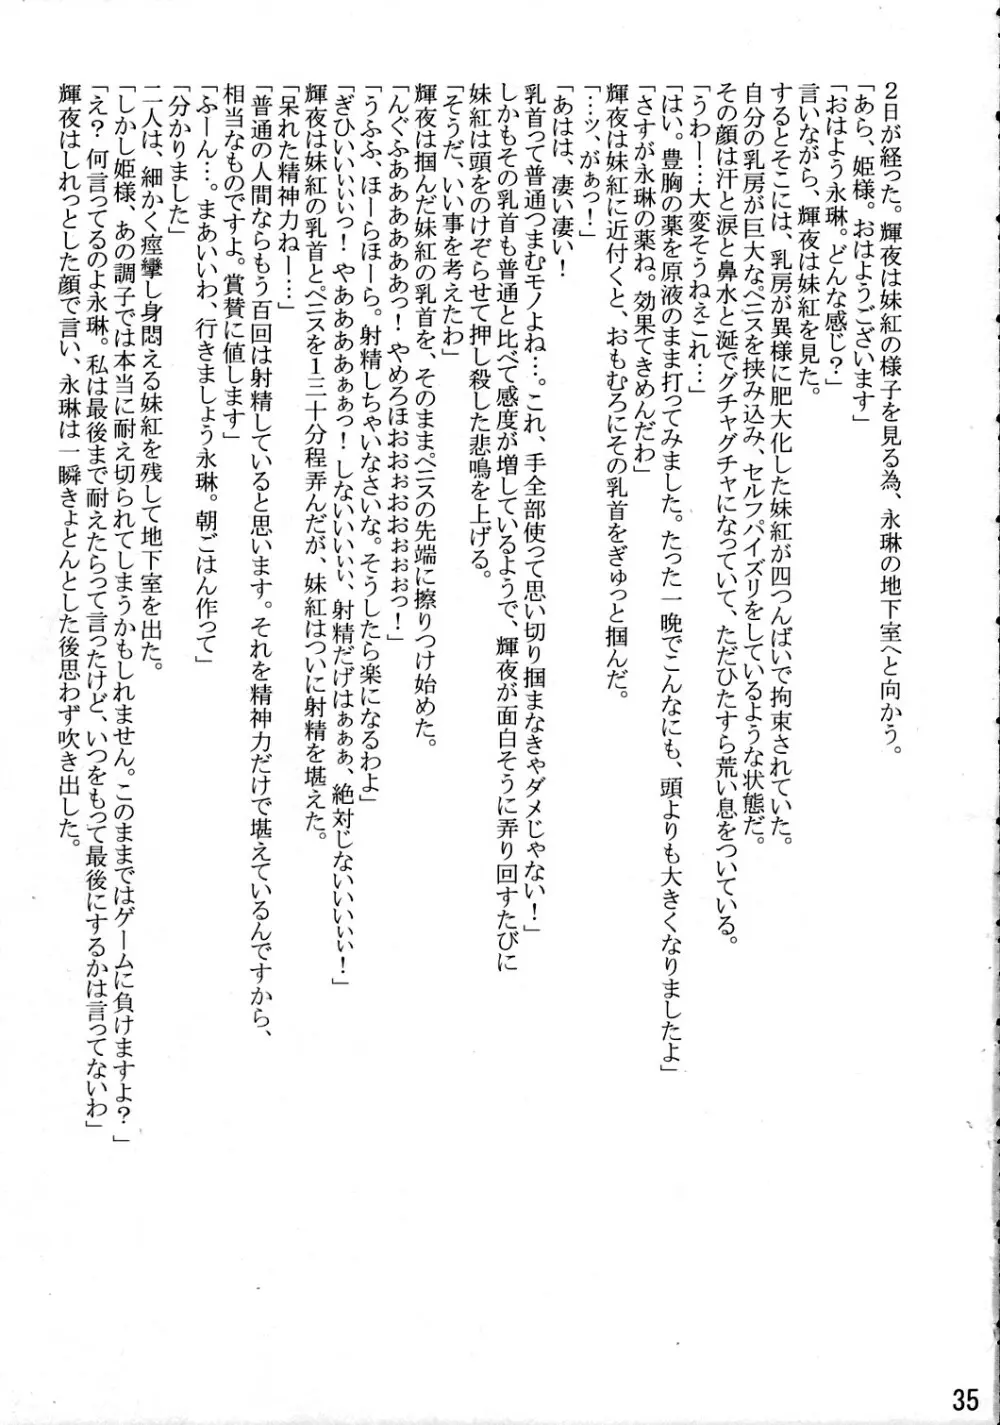 2日が経った。輝夜は妹紅の様子を見る為、永琳の地下室へと向かう。
「あら、姫様。おはようございます」
「おはよう永琳。どんな感じ？」
言いながら、輝夜は妹紅を見た。
するとそこには、乳房が異様に肥大化した妹紅が四つんばいで拘束されていた。
自分の乳房が巨大なペニスを挟み込み、セルフパイズリをしているような状態だ。
その顔は汗と涙と鼻水と涎でグチャグチャになっていて、ただひたすら荒い息をついている。
「うわー…大変そうねぇこれ…」
「はい。豊胸の薬を原液のまま打ってみました。たった一晩でこんなにも、頭よりも大きくなりましたよ」
「さすが永琳の薬ね。効果てきめんだわ」
輝夜は妹紅に近付くと、おもむろにその乳首をぎゅっと掴んだ。
「…ッ、がぁっ！」
「あはは、凄い凄い！
乳首って普通つまむモノよね…。これ、手全部使って思い切り掴まなきゃダメじゃない！」
しかもその乳首も普通と比べて感度が増しているようで、輝夜が面白そうに弄り回すたびに
妹紅は頭をのけぞらせて押し殺した悲鳴を上げる。
「そうだ、いい事を考えたわ」
輝夜は掴んだ妹紅の乳首を、そのままペニスの先端に擦りつけ始めた。
「んぐふああああああっ！やめろほおおぉおおぉぉおっ！」
「うふふ、ほーらほーら。射精しちゃいなさいな。そうしたら楽になるわよ」
「ぎひいいいいいっ！やああああぁぁっ！しないいいぃぃ、射精だげはぁぁぁ、絶対じないいいいぃぃ！」
輝夜は妹紅の乳首とペニスを1三十分程弄んだが、妹紅はついに射精を堪えた。
「呆れた精神力ねー…」
「普通の人間ならもう百回は射精していると思います。それを精神力だけで堪えているんですから、
相当なものですよ。賞賛に値します」
「ふーん…。まあいいわ、行きましょう永琳。朝ごはん作って」
「分かりました」
二人は、細かく痙攣し身悶える妹紅を残して地下室を出た。
「しかし姫様、あの調子では本当に耐え切られてしまうかもしれません。このままではゲームに負けますよ？」
「え？何言ってるのよ永琳。私は最後まで耐えたらって言ったけど、いつをもって最後にするかは言ってないわ」
輝夜はしれっとした顔で言い、永琳は一瞬きょとんとした後思わず吹き出した。
35